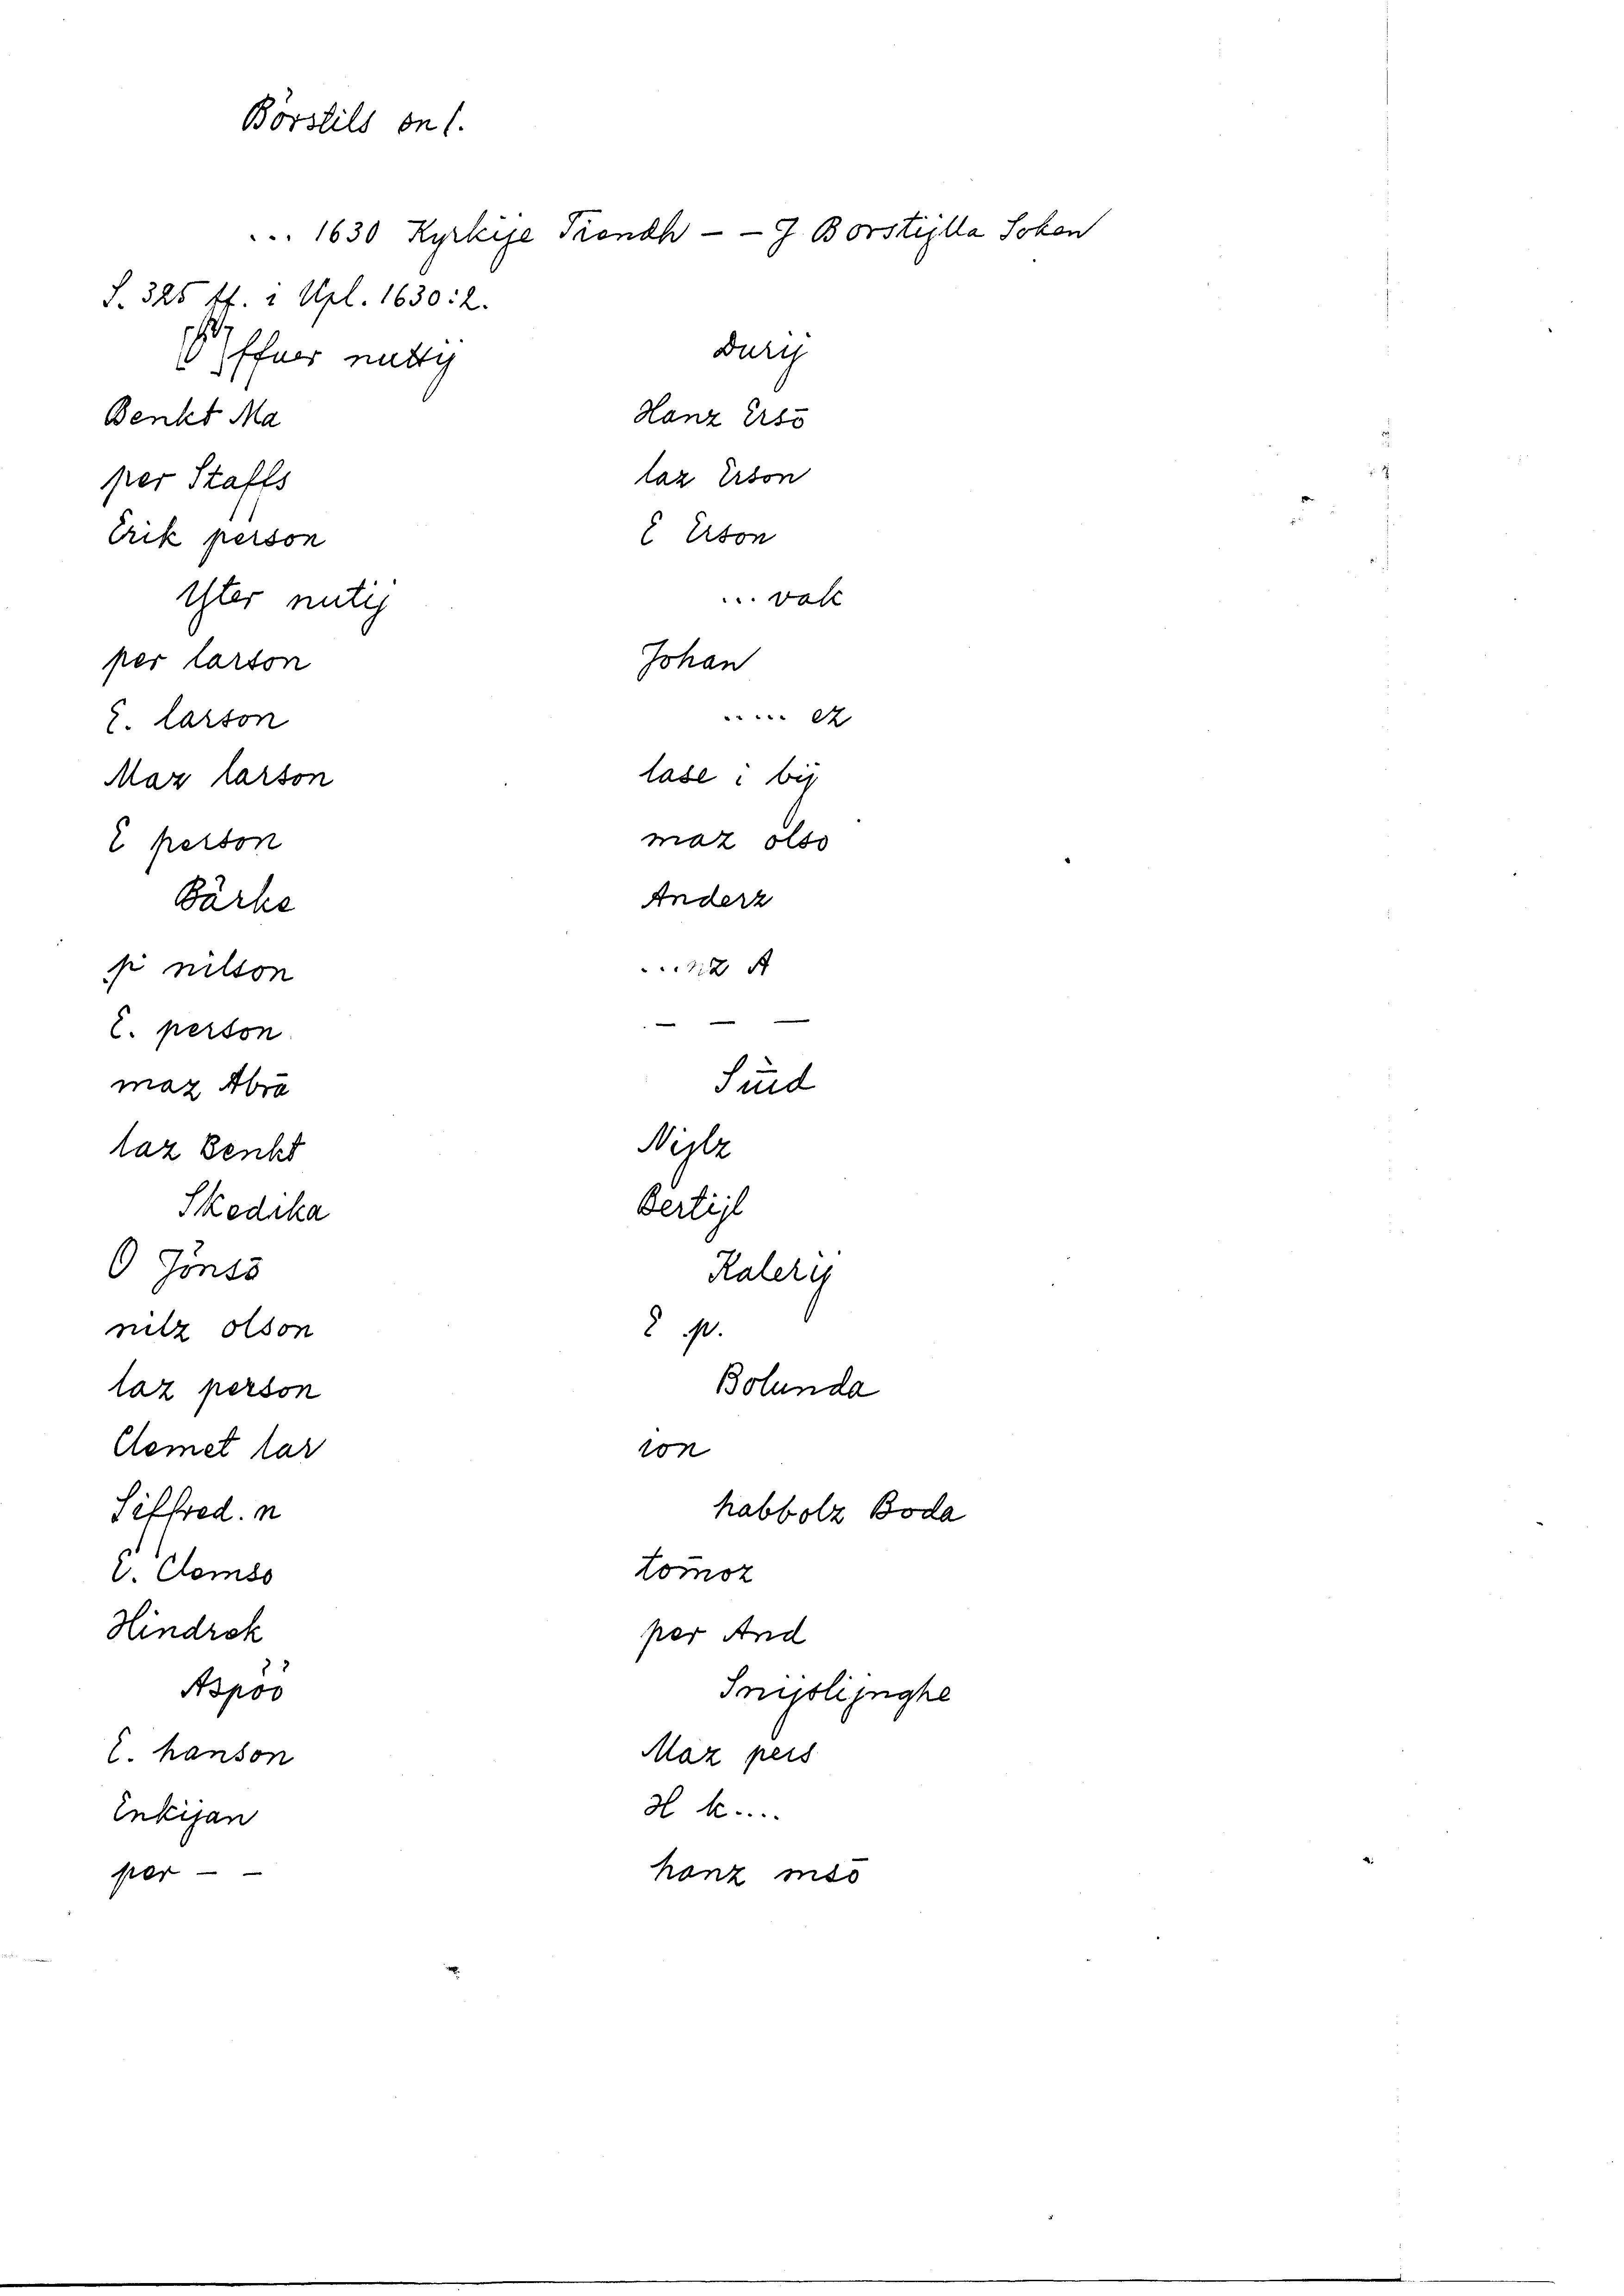 Börstils sn 1.
... 1630 Kyrkije Tiendh - - J Borstijlla Soken
S. 325 ff. i Upl. 1630:2.
Öffuer nuttij
Benkt Ma
per Staffs
Erik person
Ytter nutij
per larson
E. larson
Maz larson
E person
Bärke
p nilson
E. person
maz Abrā
laz Benkt
Skedika
O Jönsō
nilz olson
laz person
Clemet lar
Siffred. n
E. Clemso
Hindrek
Aspöö
E. hanson
Enkijan
per - -
Durij
Hanz Ersō
laz Erson
E Erson
... valt
Johan
..... ez
lase i bij
maz olso
Anderz
....iz A
- - -
Sūd
Nijlz
Bertijl
Kalerij
E p.
Bolunda
son
habbolz Boda
tom̄oz
per And
Snijslijnghe
Maz pers
H k....
hanz msō